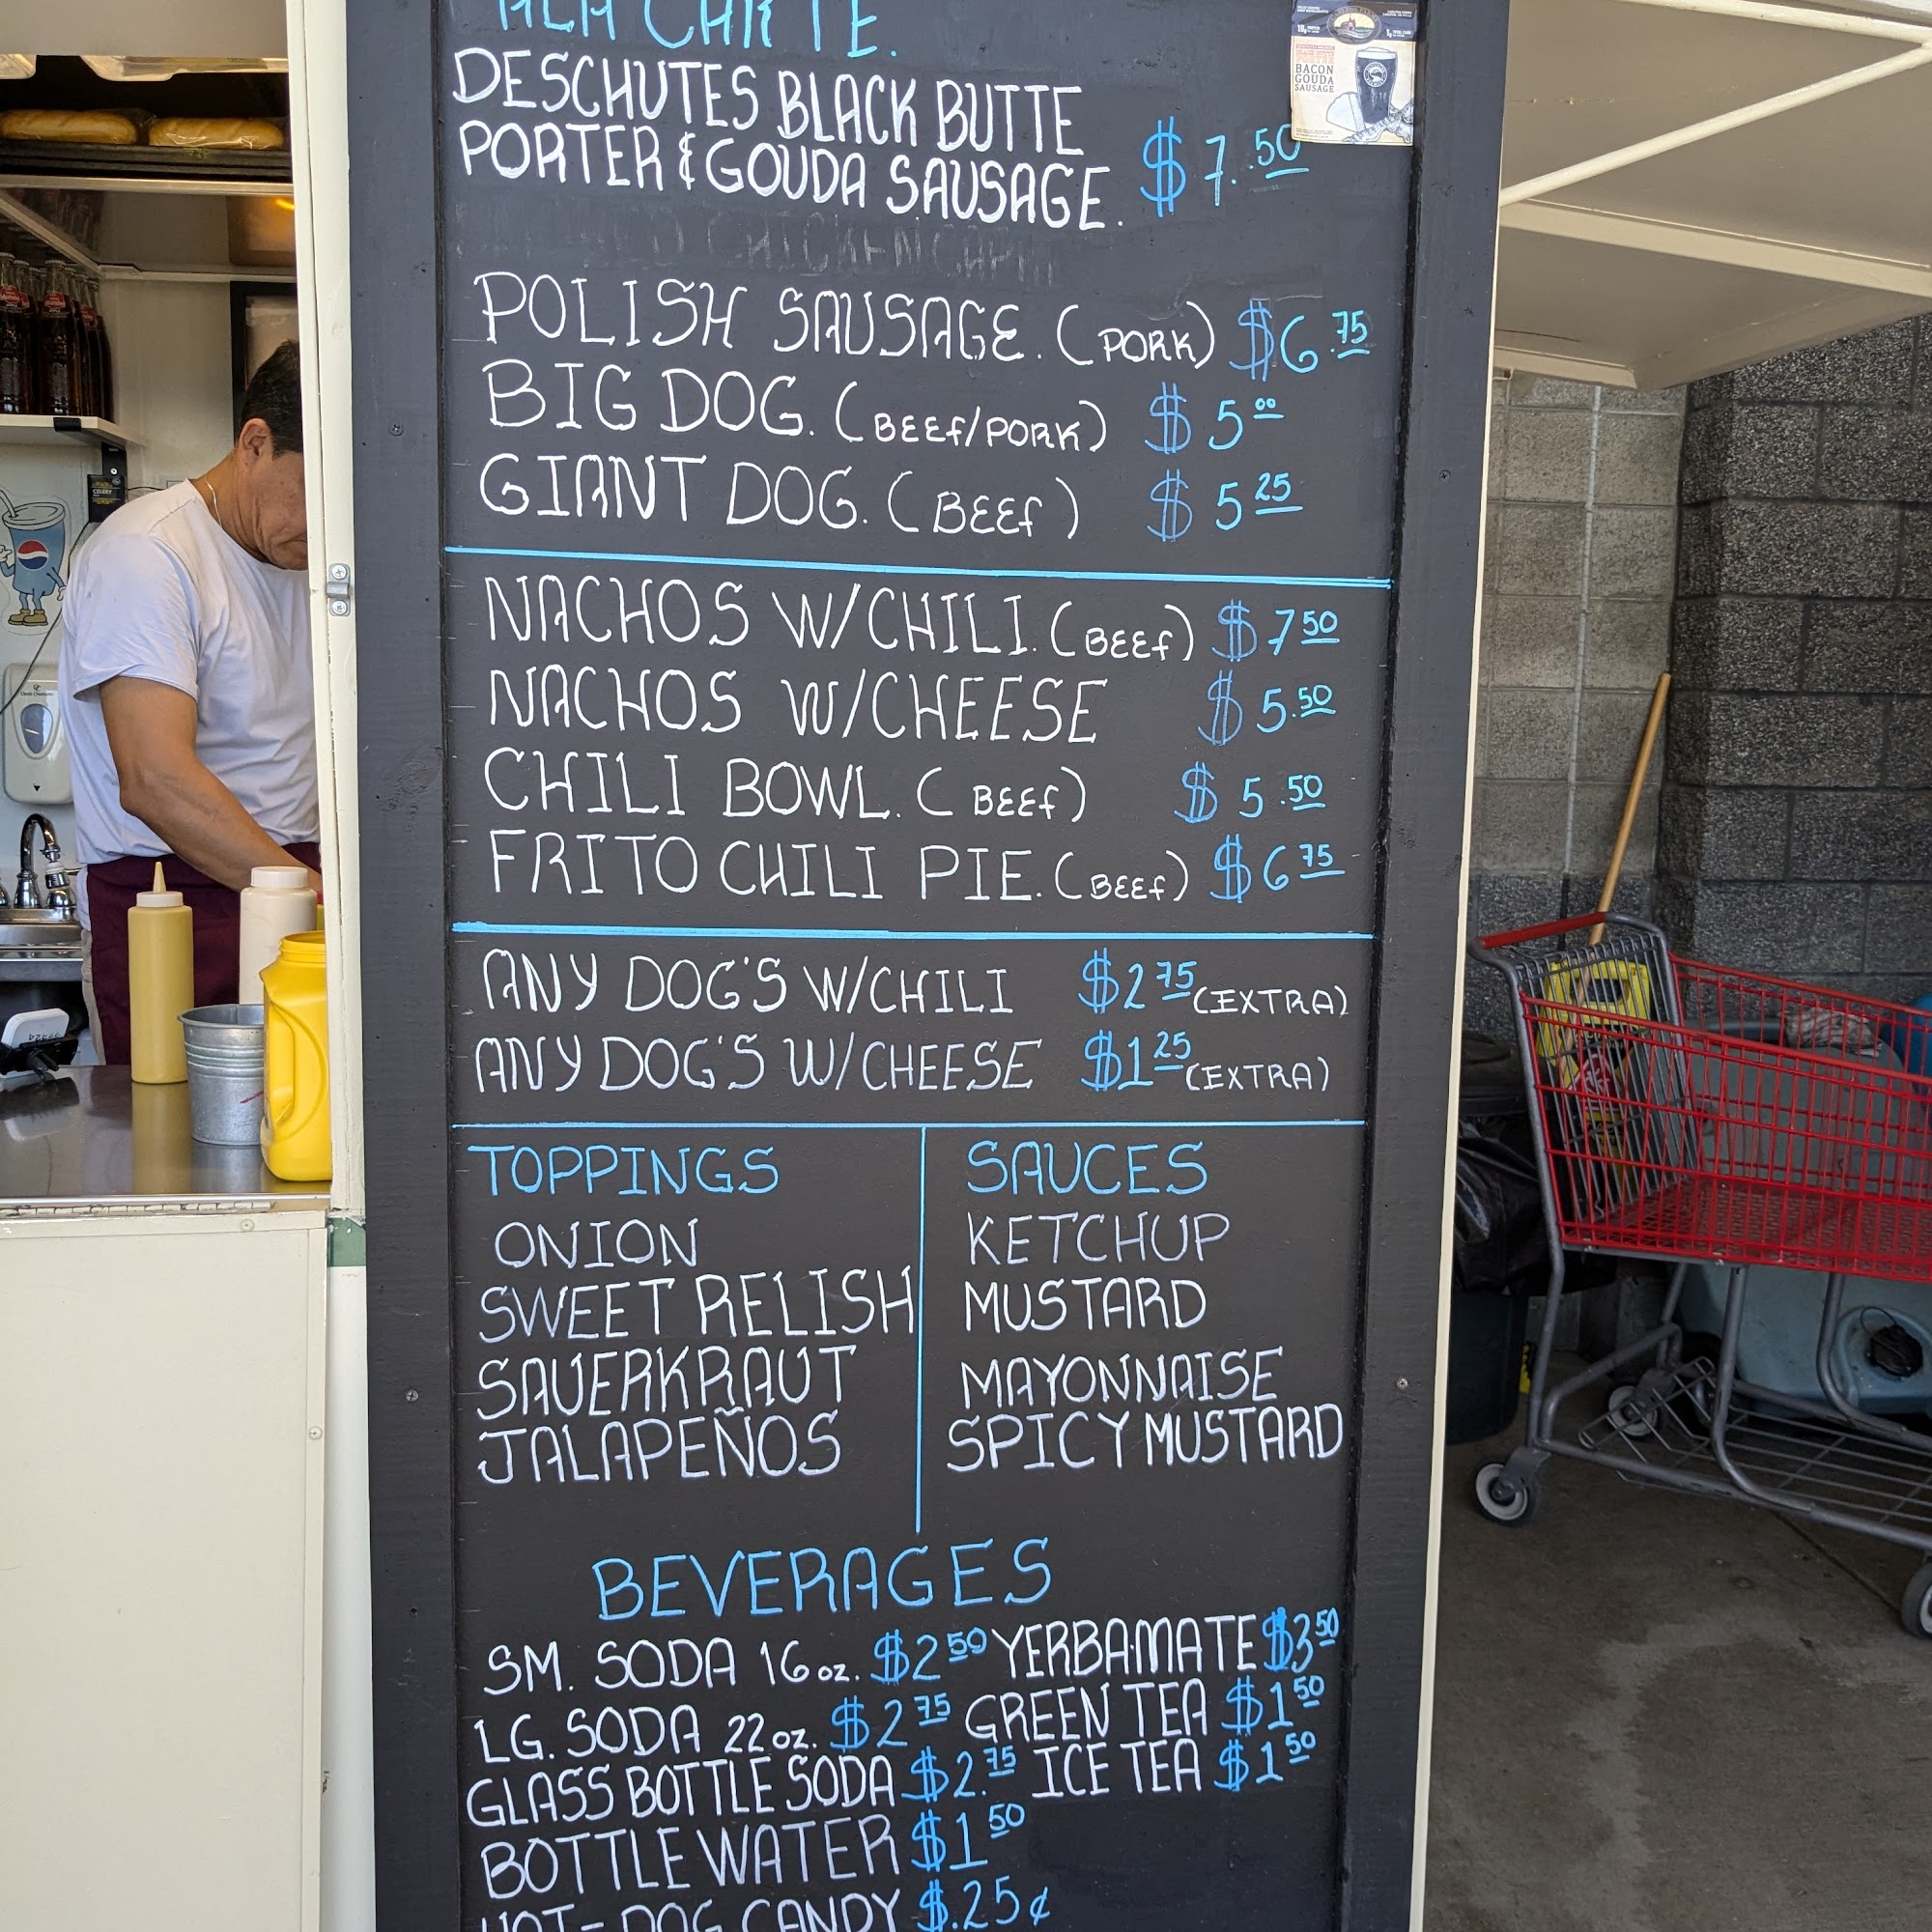 ALA CARTE.
DESCHUTES BLACK BUTTE
PORTER & GOUDA SAUSAGE. $7.50
POLISH SAUSAGE. (PORK) $6.75
BIG DOG. (BEEf/PORK) $5 00
GIANT DOG. (BEEf) $5 25
NACHOS W/CHILI. (BEEf) $7 50
NACHOS W/CHEESE $5.50
CHILI BOWL. (BEEf) $5.50
FRITO CHILI PIE. (BEEf) $6 75
ANY DOG'S W/CHILI $2 75 (EXTRA)
ANY DOG'S W/CHEESE $1 25 (EXTRA)
TOPPINGS
ONION
SWEET RELISH
SAUERKRAUT
JALAPEÑOS
SAUCES
KETCHUP
MUSTARD
MAYONNAISE
SPICY MUSTARD
BEVERAGES
SM. SODA 16 oz. $2 50 YERBA MATE $3 50
LG. SODA 22 oz. $2 75 GREEN TEA $1 50
GLASS BOTTLE SODA $2.75 ICE TEA $1 50
BOTTLE WATER $1 50
HOT-DOG CANDY $.25¢
BACON
GOUDA
SAUSAGE
CELERY